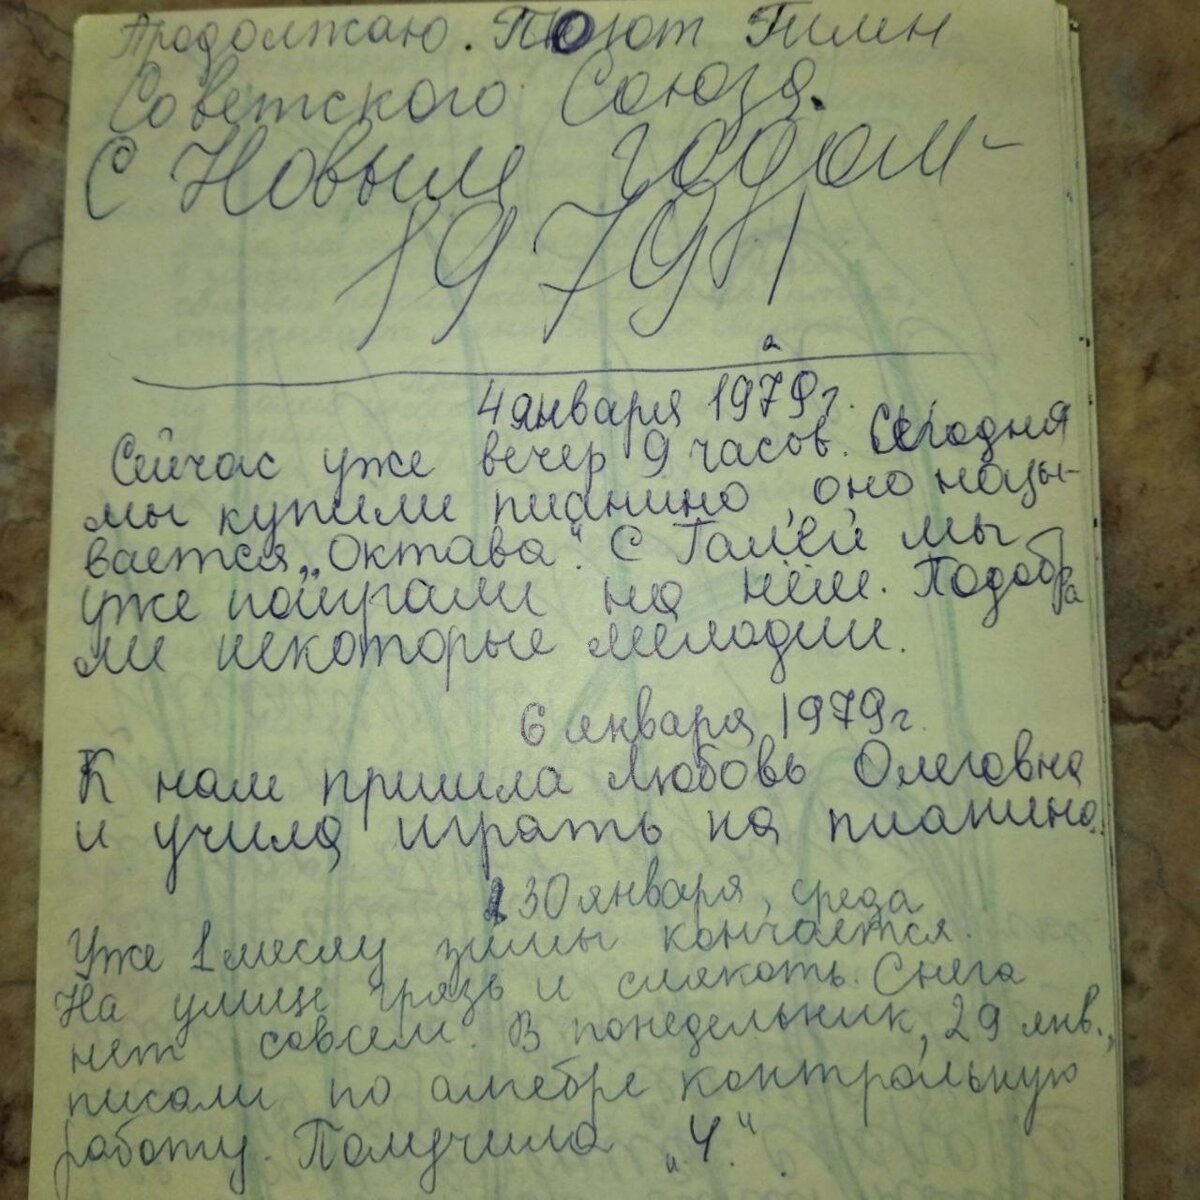 Продолжаю. Поют Гимн
Советского Союза.
С Новым годом -
1979!!
4 января 1979 г.
Сейчас уже вечер 9 часов. Сегодня
мы купили пианино, оно назы-
вается „Октава". С Галей мы
уже поиграли на нём. Подобра
ли некоторые мелодии.
6 января 1979 г.
К нам пришла Любовь Олеговна
и учила играть на пианино.
30 января, среда
Уже 1 месяц зимы кончается.
На улице грязь и слякоть. Снега
нет совсем. В понедельник, 29 янв.,
писали по алгебре контрольную
работу. Получила „4".